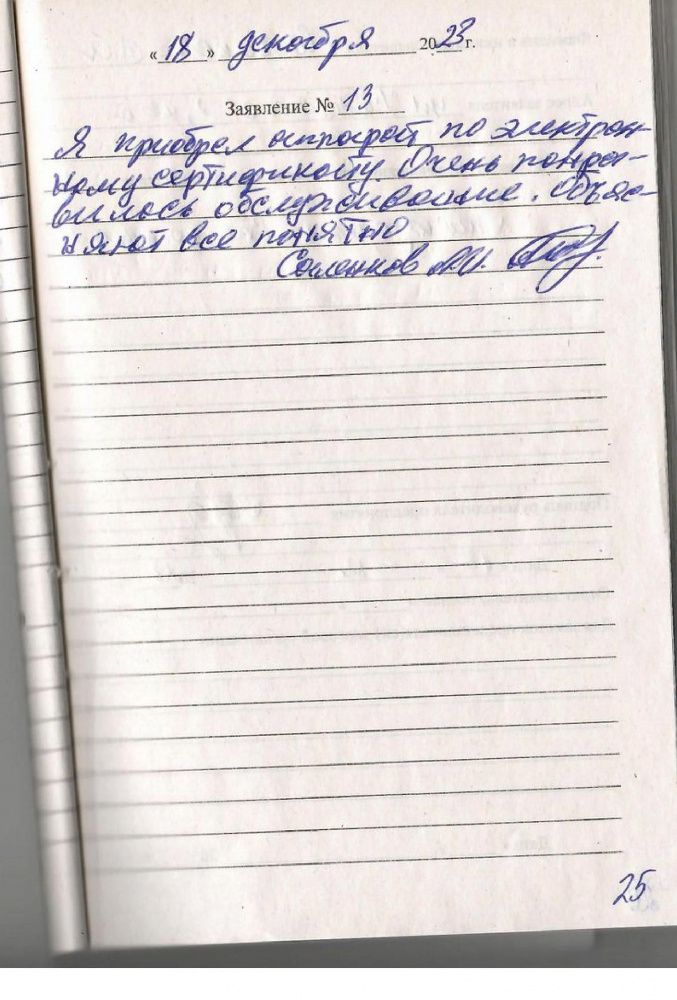 « 18 » декабря 2023 г.
Заявление № 13
Я приобрел аппарат по электрон-
ному сертификату. Очень понра-
вилось обслуживание. Объяс-
няют все понятно
25